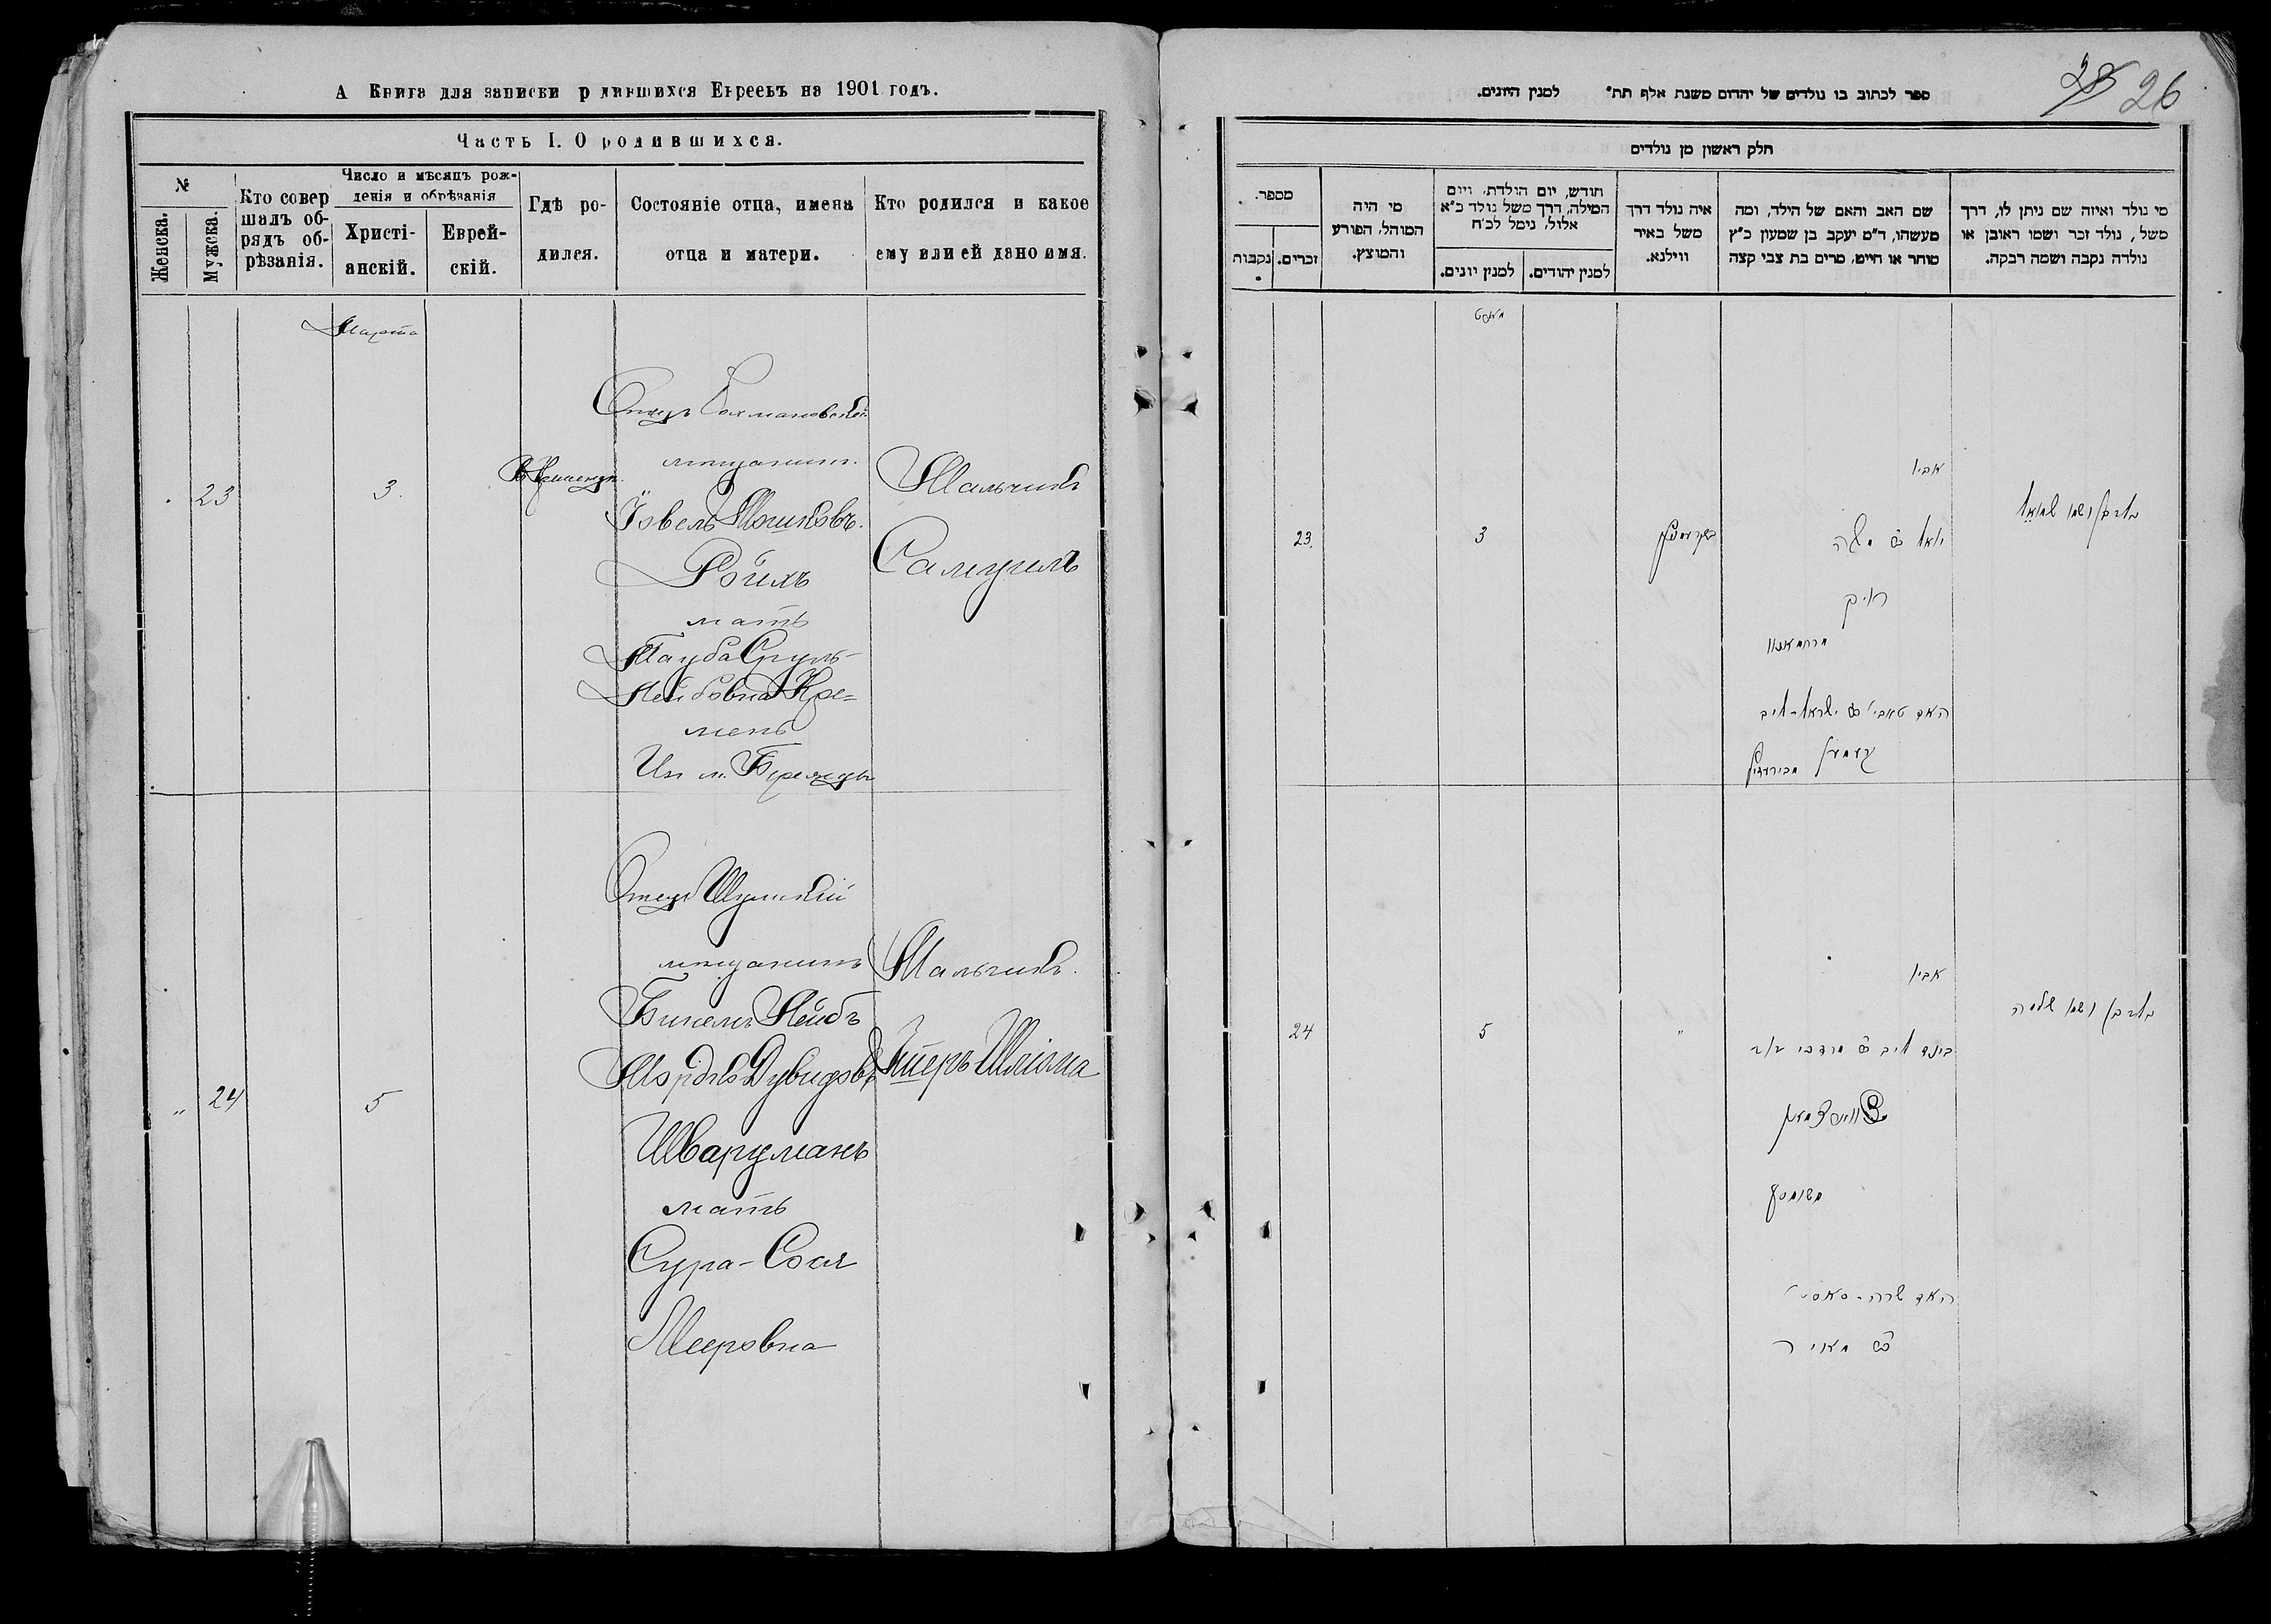 А Книга для записки р дившихся Евреевъ на 1901 годъ.
Часть I. О родившихся.
№
Женска.
Мужска.
Кто совер
шалъ об-
рядъ об-
рѣзанія.
Число и мѣсяцъ рож-
денія и обрѣзанія
Христі-
анскій.
Еврей-
скій.
Гдѣ ро-
дился.
Состояніе отца, имена
отца и матери.
Кто родился и какое
ему или ей дано имя.
Марта
23
3.
Отецъ
мѣщанин.
Іовель Мошковъ.
Ройхъ
мать
Тауба Сруль-
Лейбовна Кре-
мень
Из м.
Мальчикъ
Самуилъ
24
5
Отецъ Шумскій
мѣщанинъ
Лейбъ
Мордко Дувидовъ
Шварцманъ
мать
Сура-Сося
Мееровна
Мальчикъ.
Шлiома
ספר לכתוב בו נולדים של יהדום משנת אלף תת״ למנין היונים.
26
חלק ראשון מן נולדים
מספר.
נקבות
זכרים.
מי היה
המוהל, הפורע
והמוצץ.
חודש, יום הולדת, ויום
המילה, דרך משל נולד כ״א
אלול, נימל לכ״ח
למנין יונים.
למנין יהודים.
איה נולד דרך
משל באיר
ווילנא.
שם האב והאם של הילד, ומה
מעשהו, ד״מ יעקב בן שמעון כ״ץ
סוחר או חייט, מרים בת צבי קצה
מי נולד ואיזה שם ניתן לו, דרך
משל, נולד זכר ושמו ראובן או
נולדה נקבה ושמה רבקה.
23.
3
אביו
יואל ב״ר משה
רויך
האם טאבי ב״ר ישראל-ליב
קרעמען
ושמו שמואל
24
5
"
אביו
ליב ב״ר מרדכי
האם שרה-סאסי
ב״ר מאיר
ושמו שלמה